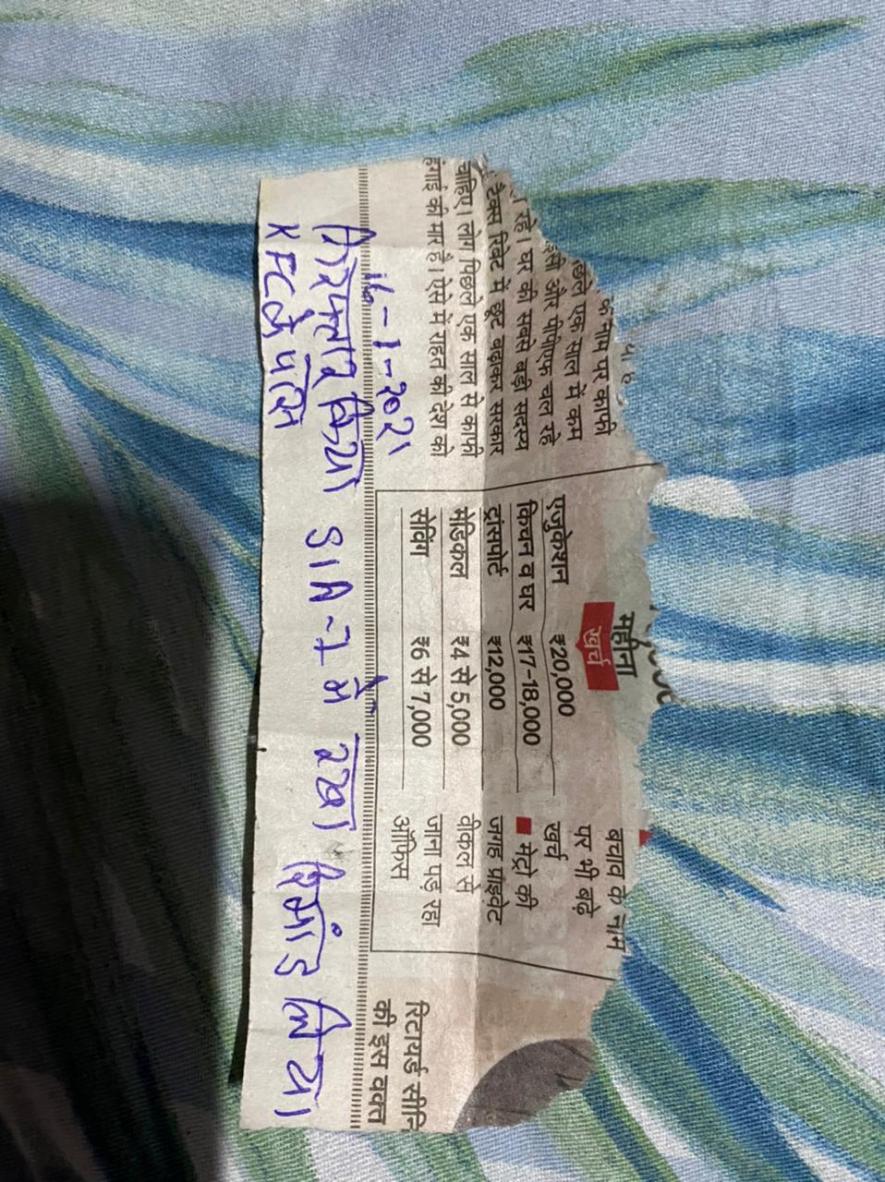 के नाम पर काफी
छले एक साल में कम
इसी और पीपीएफ चल रहे
रहे। घर की सबसे बड़ी सदस्य
टैक्स रिबेट में छूट बढ़ाकर सरकार
चाहिए। लोग पिछले एक साल से काफी
हंगाई की मार है। ऐसे में राहत की देश को
महीना
खर्च
एजुकेशन ₹20,000
किचन व घर ₹17-18,000
ट्रांसपोर्ट ₹12,000
मेडिकल ₹4 से 5,000
सेविंग ₹6 से 7,000
बचाव के नाम
पर भी बढ़े
खर्च
■ मेट्रो की
जगह प्राइवेट
वीकल से
जाना पड़ रहा
ऑफिस
रिटायर्ड सीनि
की इस वक्त
16-1-2021
गिरफ्तार किया SIA-1 में रखा रिमांड लिया
KFC के पास